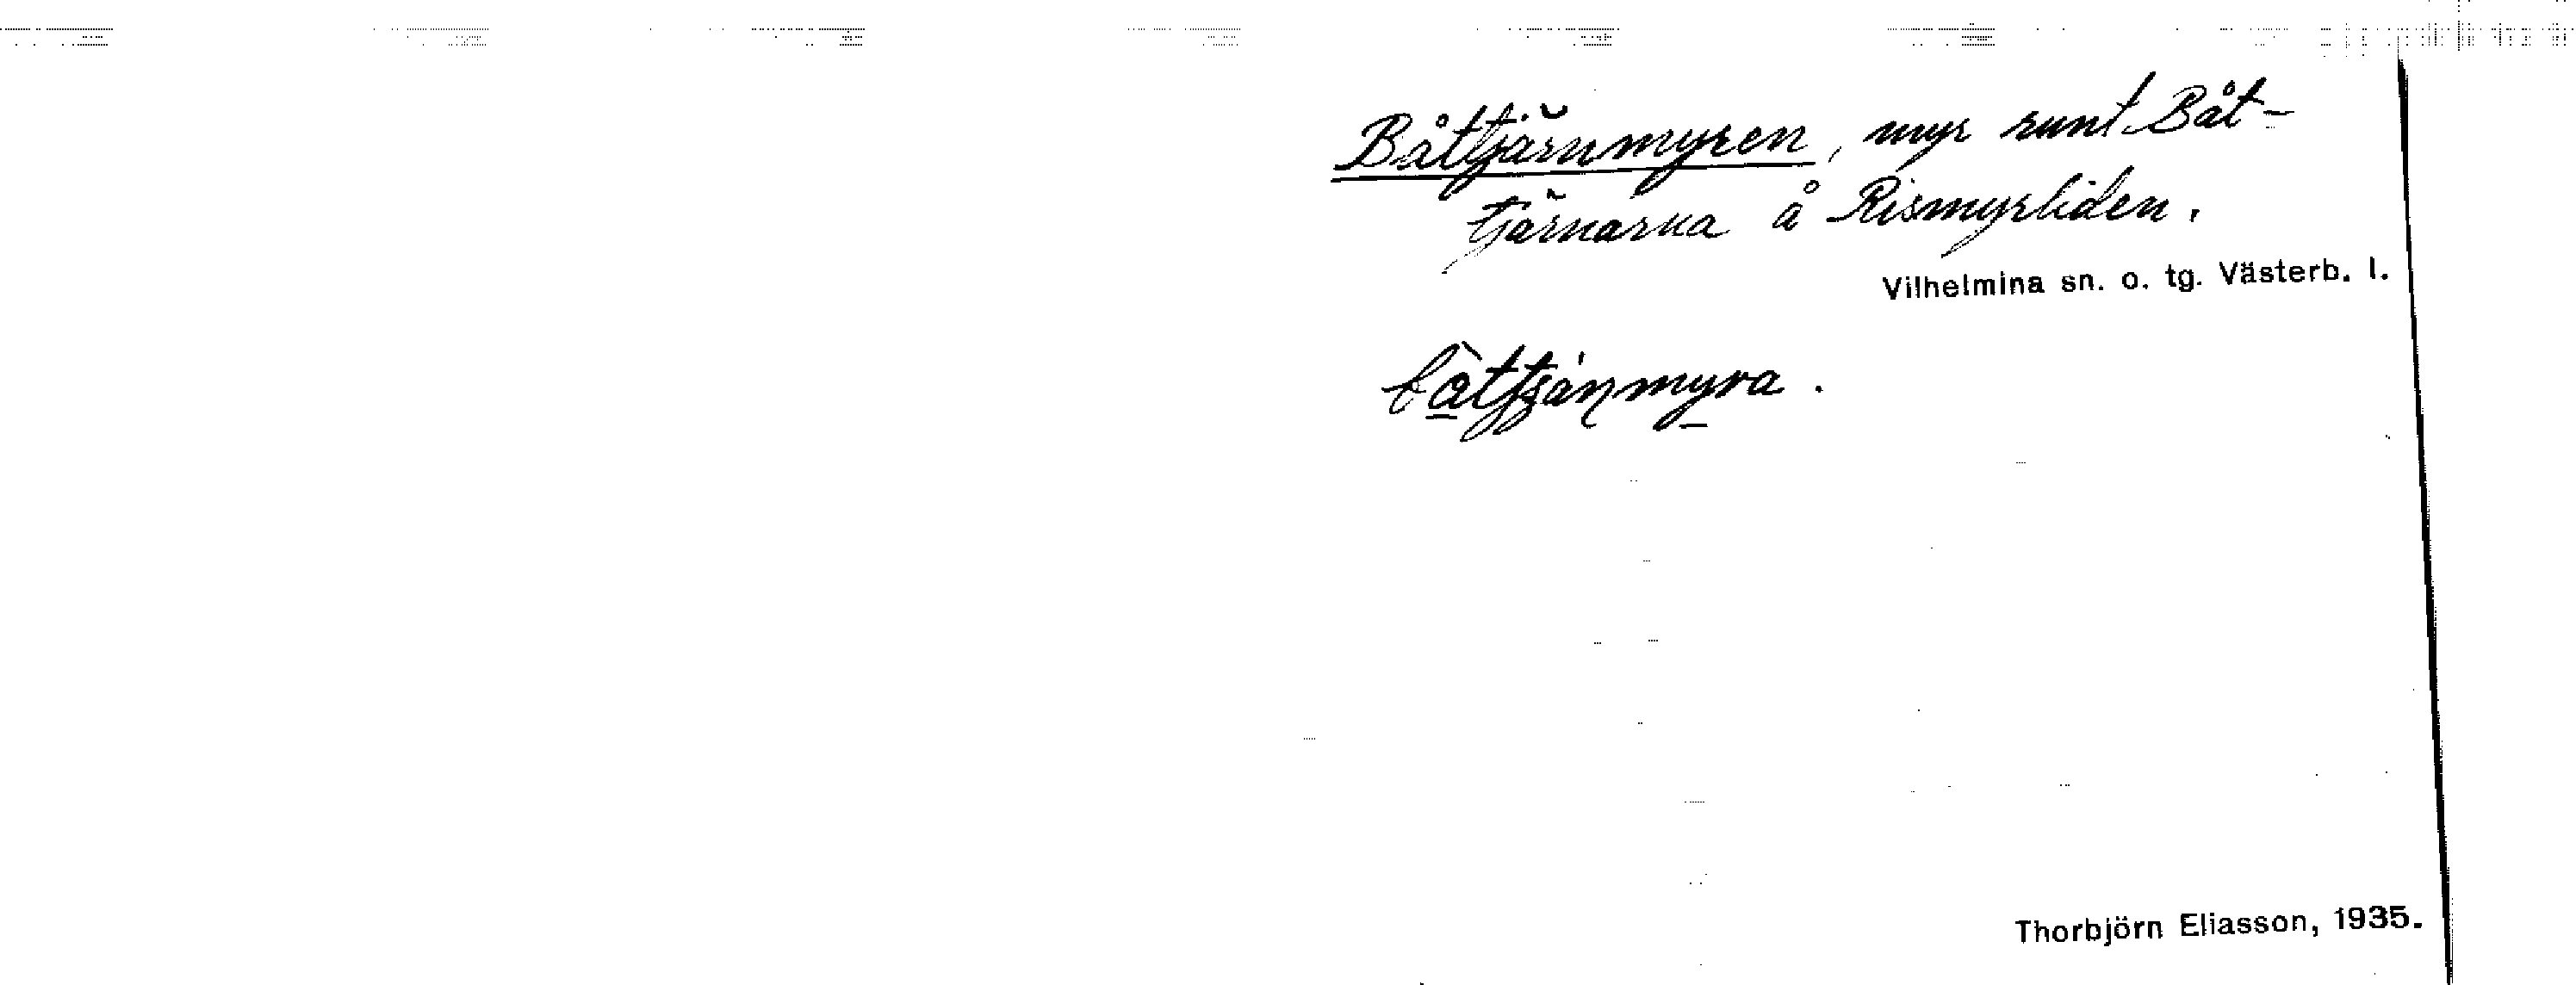 Båttjärnmyren, myr runt Båt-
tjärnarna å Rismyrliden.
Vilhelmina sn. o. tg. Västerb. l.
båttjánmyra.
Thorbjörn Eliasson, 1935.